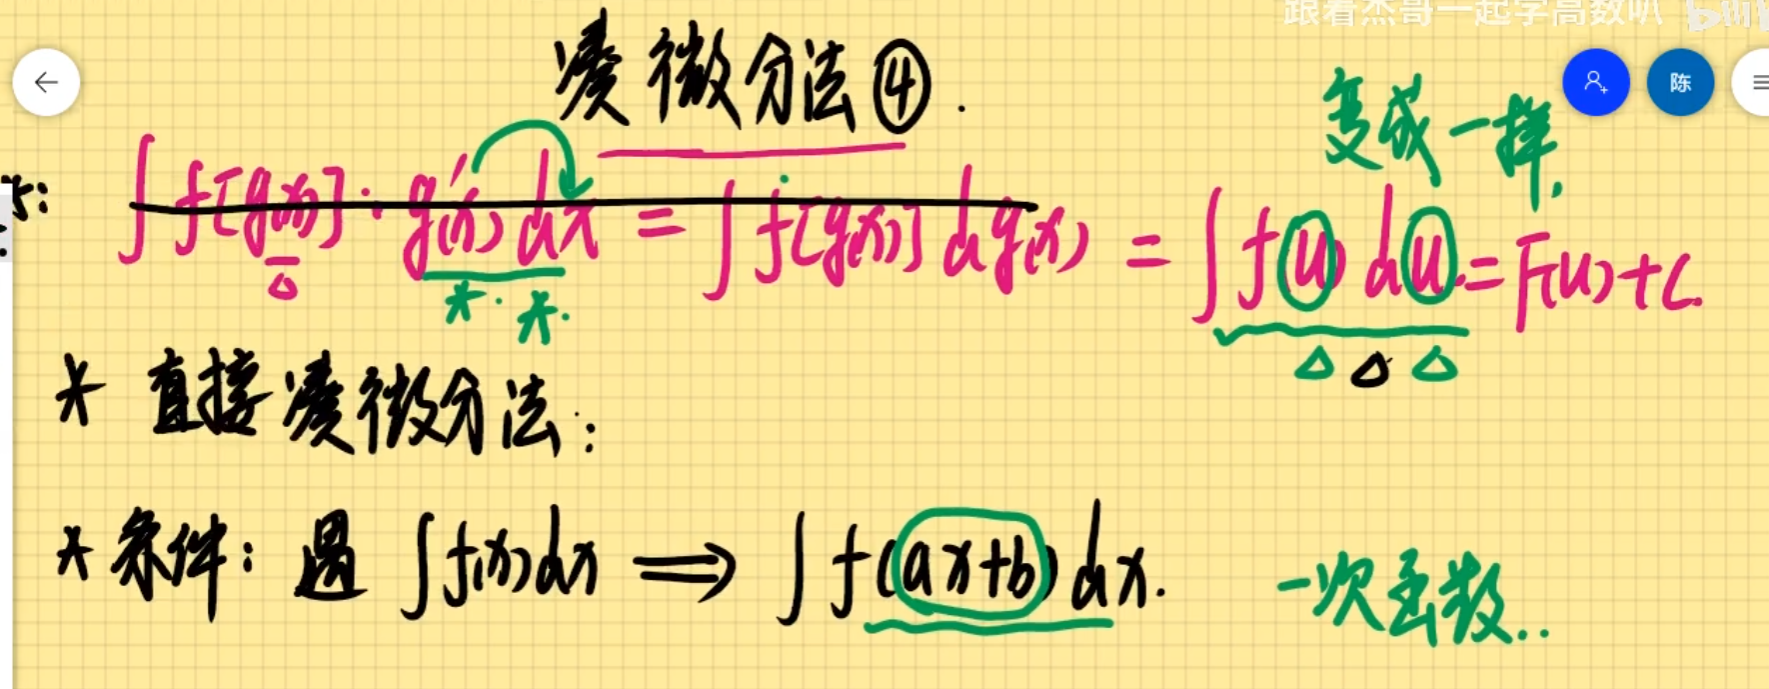 跟着杰哥一起学高数叭 bilibili
凑微分法④.
陈
变成一样.
∫f[g(x)]·g'(x)dx = ∫f[g(x)]dg(x) = ∫f(u)du = F(u)+C.
* 直接凑微分法:
* 条件: 遇 ∫f(x)dx ⟹ ∫f(ax+b)dx. 一次函数..